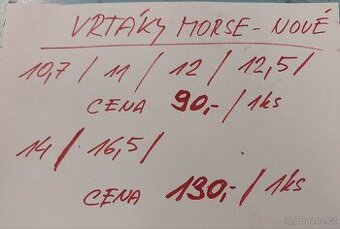 VRTÁKY MORSE - NOVÉ
10,7 / 11 / 12 / 12,5 /
CENA 90,- / 1ks
14 / 16,5 /
CENA 130,- / 1ks